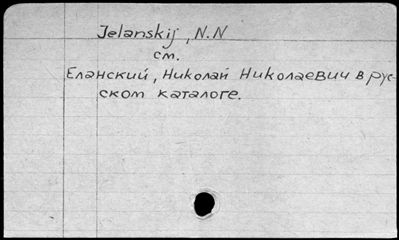 Jelanskij, N.N
см.
Еланский, Николай Николаевич в рус-
ском каталоге.